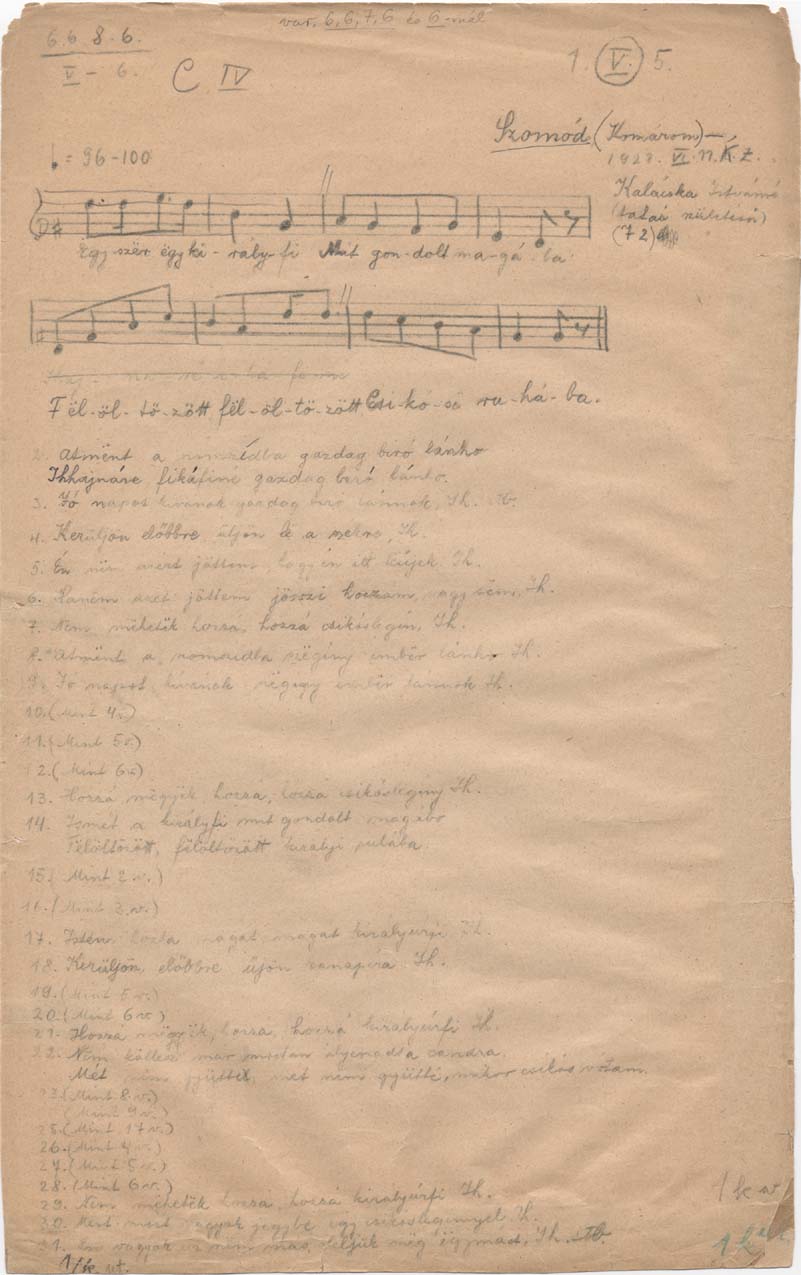 var. 6, 6, 7, 6 és 6-nál
6. 6 8. 6.
V - 6.
C IV
1. V. 5.
Szomód (Komárom) –
VI. N. K. Z.
♩. = 96-100
Kalácska Istvánné
(tatai születésű)
(72)
Egy-szër ëgy ki - rály-fi Mit gon-dolt ma-gá-ba
Fël-öl-tö-zött fël-öl-tö-zött Csi-ko-si ru-há-ba.
2. Átmënt a gazdag biró lánho
Ihhajnáre fikáfiné gazdag biró lánho.
3. Jó napot kivánok gazdag biró lánnok, Ih.
4. Kerüljön előbbre üljön lë a Ih.
5. Én nëm azért jöttem, hogy én itt Ih.
6. Hanëm azt jöttem jössz-i hozzám, vagy sëm, Ih.
7. Nem mëhetëk hozzá, hozzá csikóslegén, Ih.
8. Átmënt a szëgény embër lánho Ih.
9. Jó napot kivánok szëgény embër lánnok Ih.
10. (Mint 4 v.)
11. (Mint 5 v.)
12. (Mint 6 v.)
13. Hozzá mëgyëk hozzá, hozzá csikóslegény Ih.
14. Ismét a királyfi mit gondolt magábo
Fëlöltözött, fëlöltözött királyi ruhába.
15. (Mint 2. v.)
16. (Mint 3. v.)
17. Isten hozta magát, magát királyúrfi Ih.
18. Kerüljön, előbbre üjön kanapéra Ih.
19. (Mint 5 v.)
20. (Mint 6 v.)
21. Hozzá mëgyëk, hozzá, hozzá királyúrfi Ih.
22. Nëm këllesz mán mostan
Mét nëm gyüttél, mét nem gyütté, mikor csikós votam.
23. (Mint 8. v.)
(Mint 9 v.)
25. (Mint 17 v.)
26. (Mint 4 v.)
27. (Mint 5 v.)
28. (Mint 6 v.)
29. Nem mëhetëk hozzá, hozzá királyúrfi Ih.
30. Mert mást vagyok jegybe egy csikóslegénnyel Ih.
31. Én vagyok az nëm más, ëgymást, Ih.
1/k. üt.